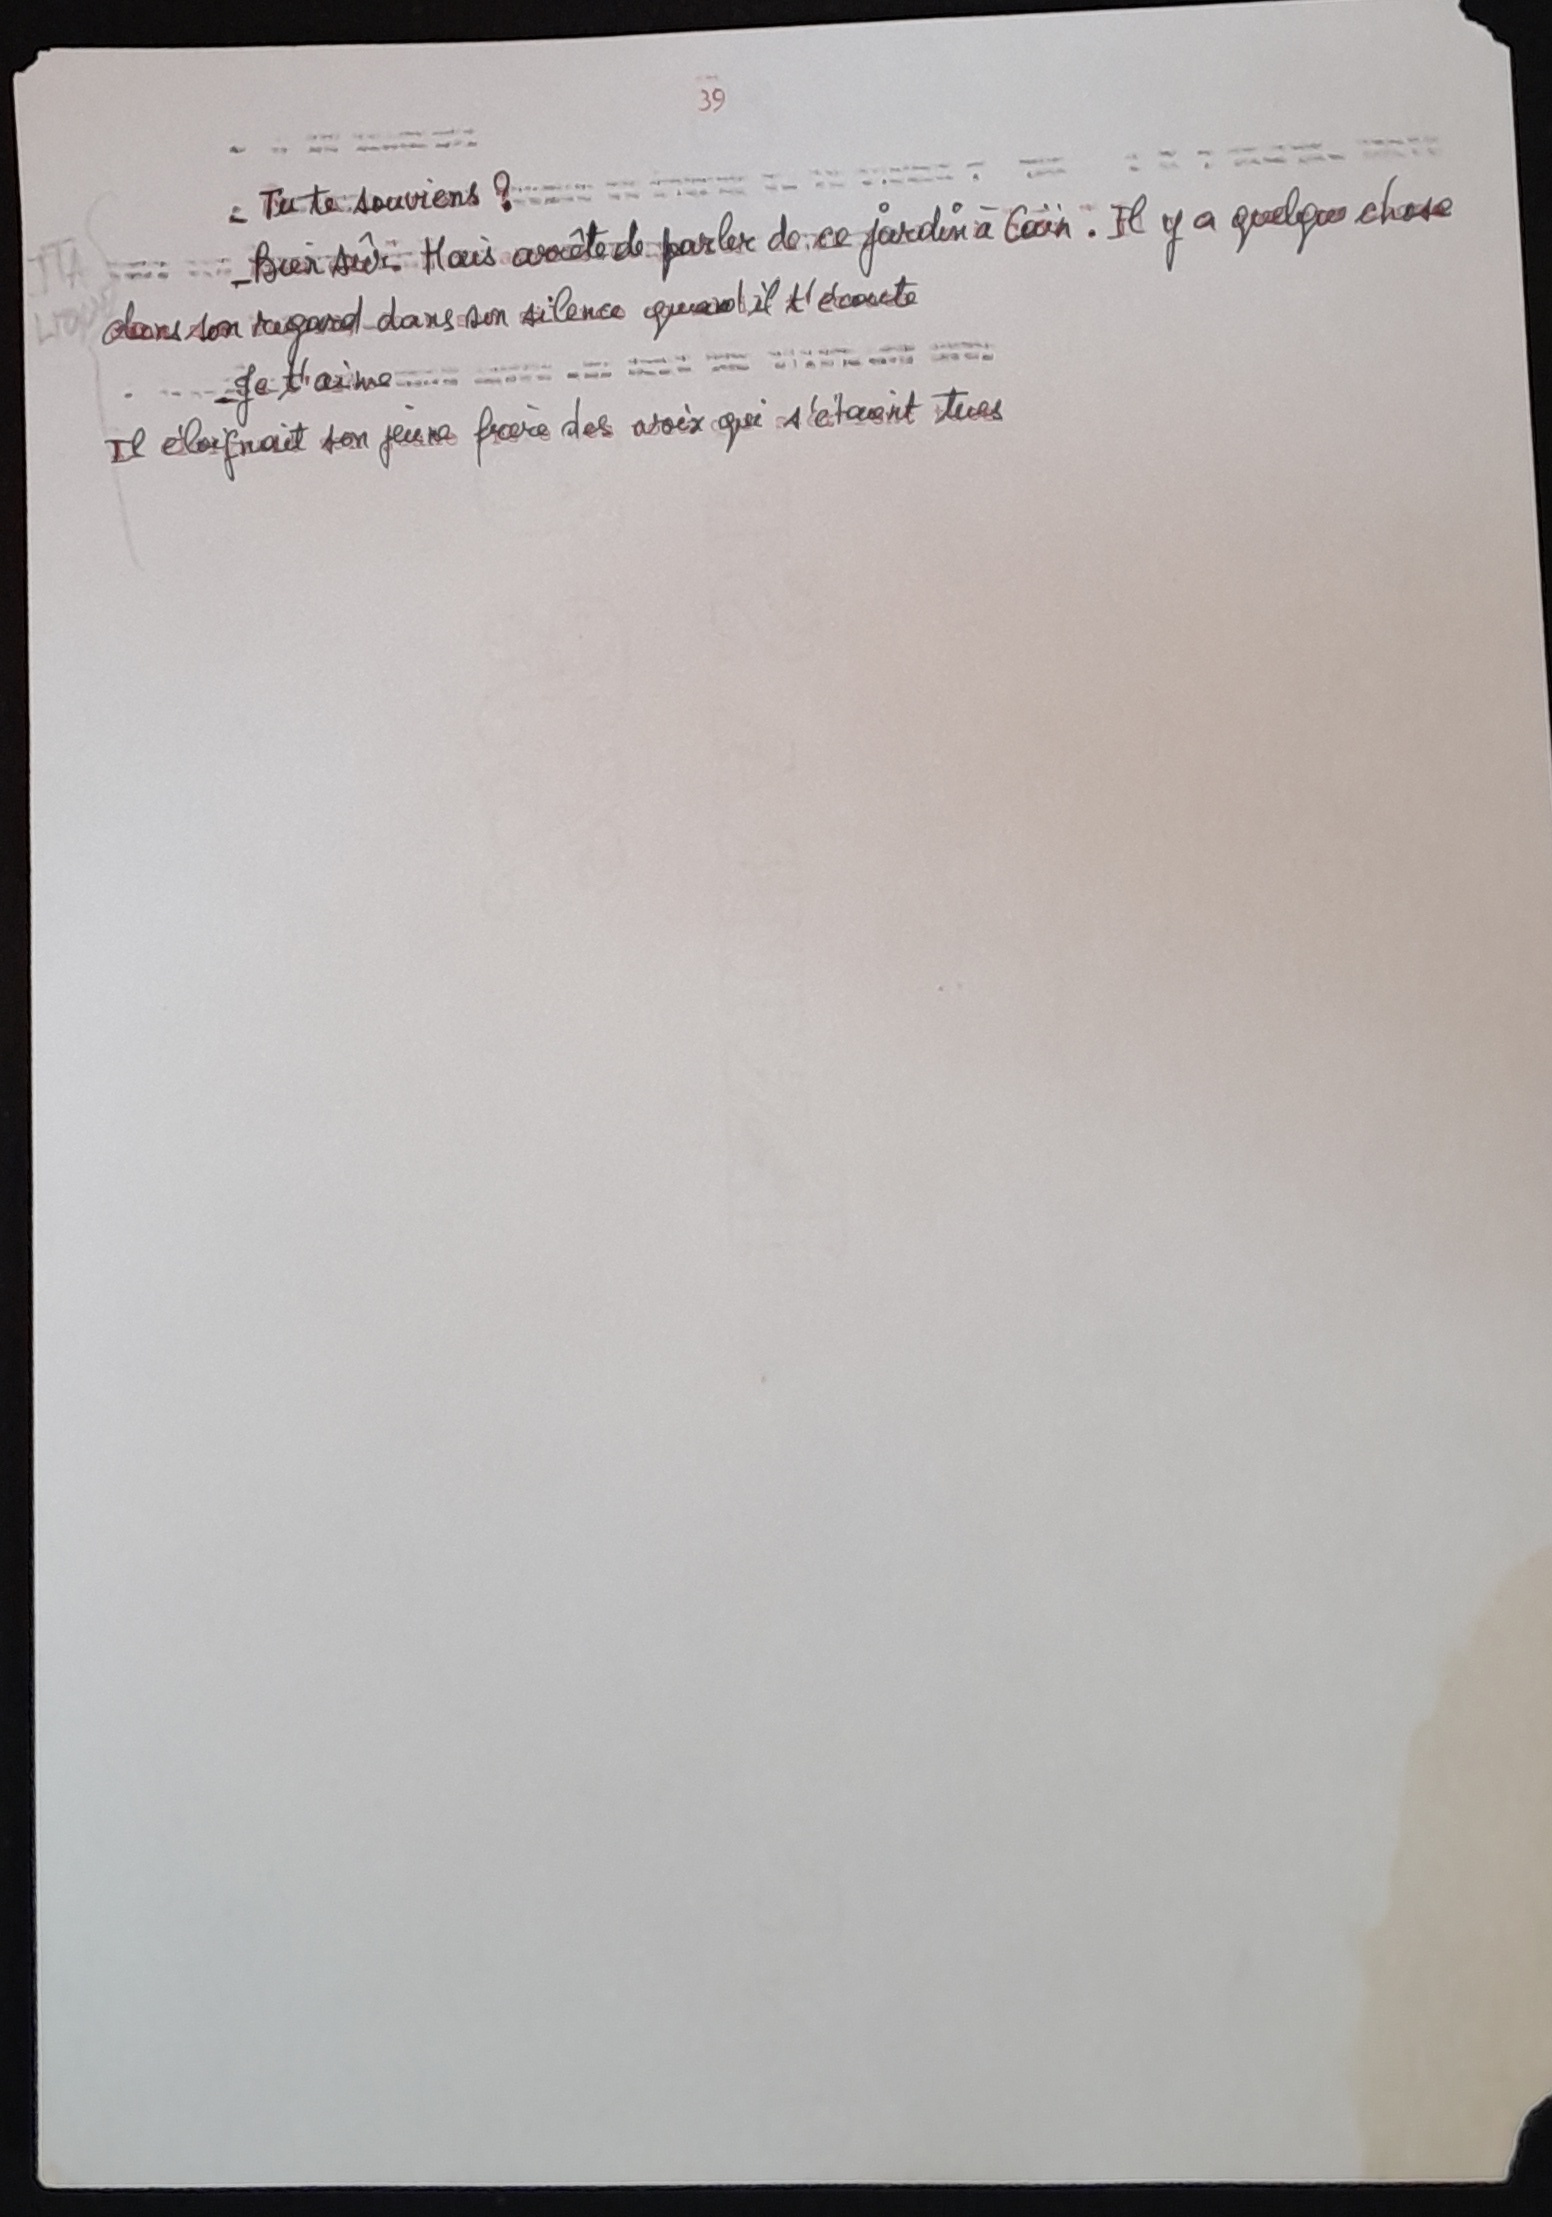 39
- Tu te souviens ?
- Bien sûr. Mais arrête de parler de ce jardin à Caïn. Il y a quelque chose
dans son regard dans son silence quand il t'écoute
- Je t'aime
Il éloignait son jeune frère des voix qui s'étaient tues
ITA